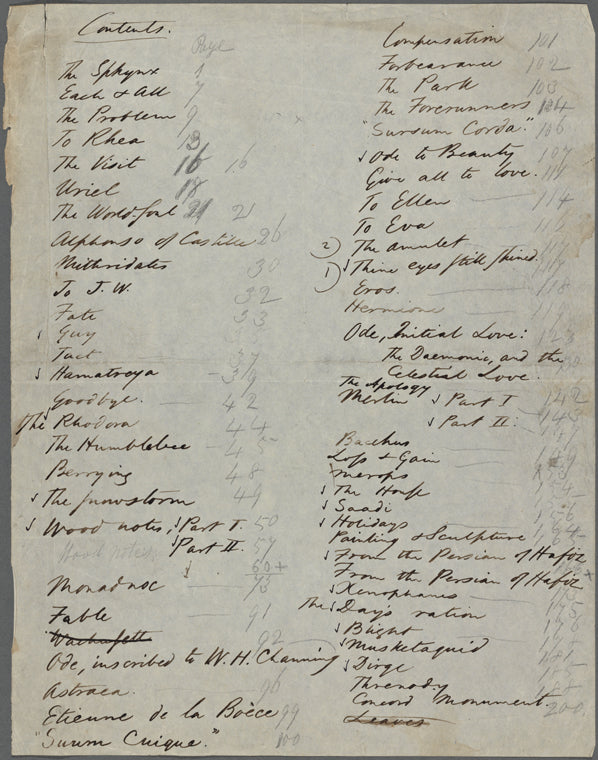 Contents.
Page
The Sphynx 1
Each & All 7
The Problem 9
To Rhea 13
The Visit 16 16
Uriel 18
The World-Soul 21 21
Alphonso of Castille 26
Mithridates 30
To J. W. 32
Fate 33
Guy
Tact 37
Hamatreya 39
Goodbye. 42
The Rhodora 44
The Humblebee 45
Berrying 48
The Snowstorm 49
Wood notes, Part I. 50
Wood notes Part II. 57
60+
Monadnoc 73
Fable 91
Wachusett 92
Ode, inscribed to W. H. Channing
Astraea. 96
Etienne de la Boèce 99
"Suum Cuique." 100
Compensation 101
Forbearance 102
The Park 103
The Forerunners 104
"Sursum Corda." 106
Ode to Beauty 107
Give all to love. 111
To Ellen 114
To Eva
2) The amulet
1) Thine eyes still shined. 117
Eros. 118
Hermione
Ode, Initial Love: 123
The Daemonic, and the
Celestial Love.
The Apology
Merlin Part I 142
Part II: 148
Bacchus
Loss & Gain
Merops
The House
Saadi
Holidays
Painting & Sculpture
From the Persian of Hafiz
From the Persian of Hafiz
Xenophanes
The Day's ration
Blight
Musketaquid
Dirge
Threnody
Concord Monument. 200
Leaves